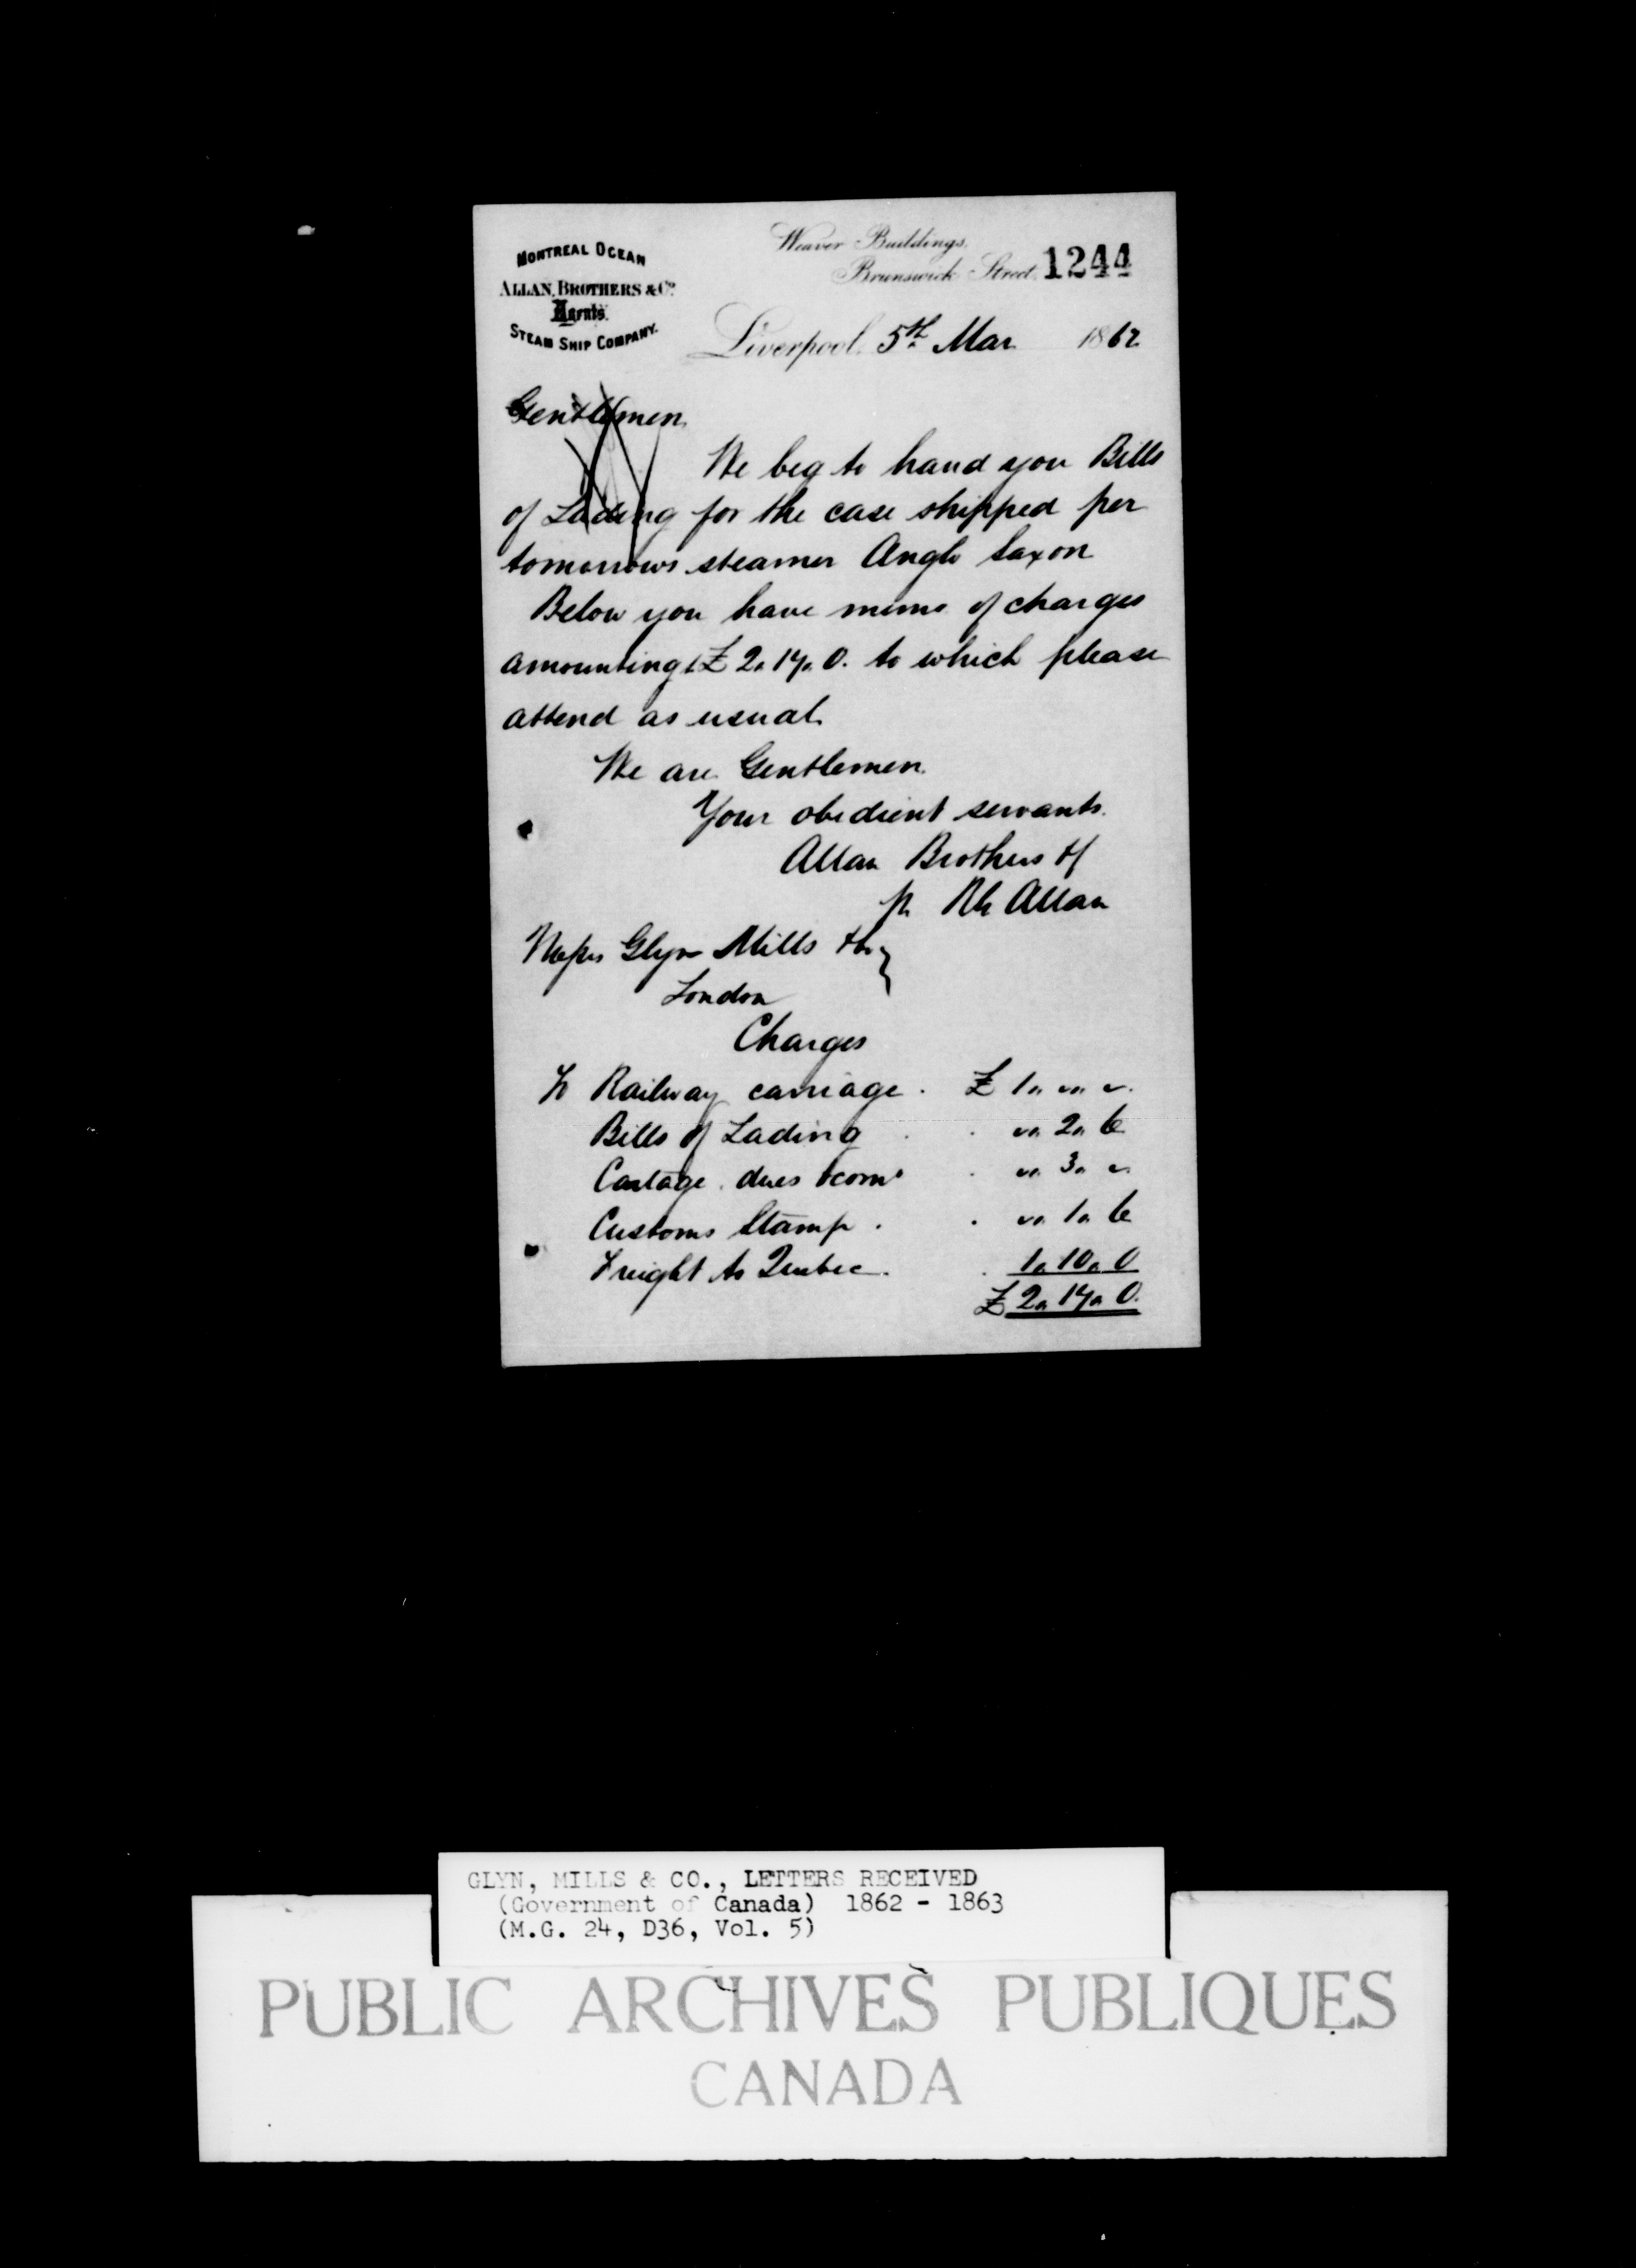 MONTREAL OCEAN
ALLAN, BROTHERS & Co.
Agents.
STEAM SHIP COMPANY.
Weaver Buildings,
Brunswick Street, 1244
Liverpool, 5th Mar 1862
Gentlemen,
We beg to hand you Bills
of Lading for the case shipped per
tomorrows steamer Anglo Saxon
Below you have memo of charges
amounting £ 2.17.0. to which please
attend as usual.
We are Gentlemen.
Your obedient servants.
Allan Brothers &Co
p Allan
Messrs Glyn Mills &Co
London
Charges
To Railway carriage . £ 1 " " " "
Bills of Lading . . " " 2 " 6
Cartage . dues &comn . " " 3 " "
Customs Stamp . . " " 1 " 6
Freight to Quebec . . 1 " 10 " 0
£ 2 " 17 " 0.
GLYN, MILLS & CO., LETTERS RECEIVED
(Government of Canada) 1862 - 1863
(M.G. 24, D36, Vol. 5)
PUBLIC ARCHIVES PUBLIQUES
CANADA